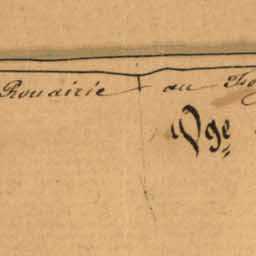 Rouairie au
Vge